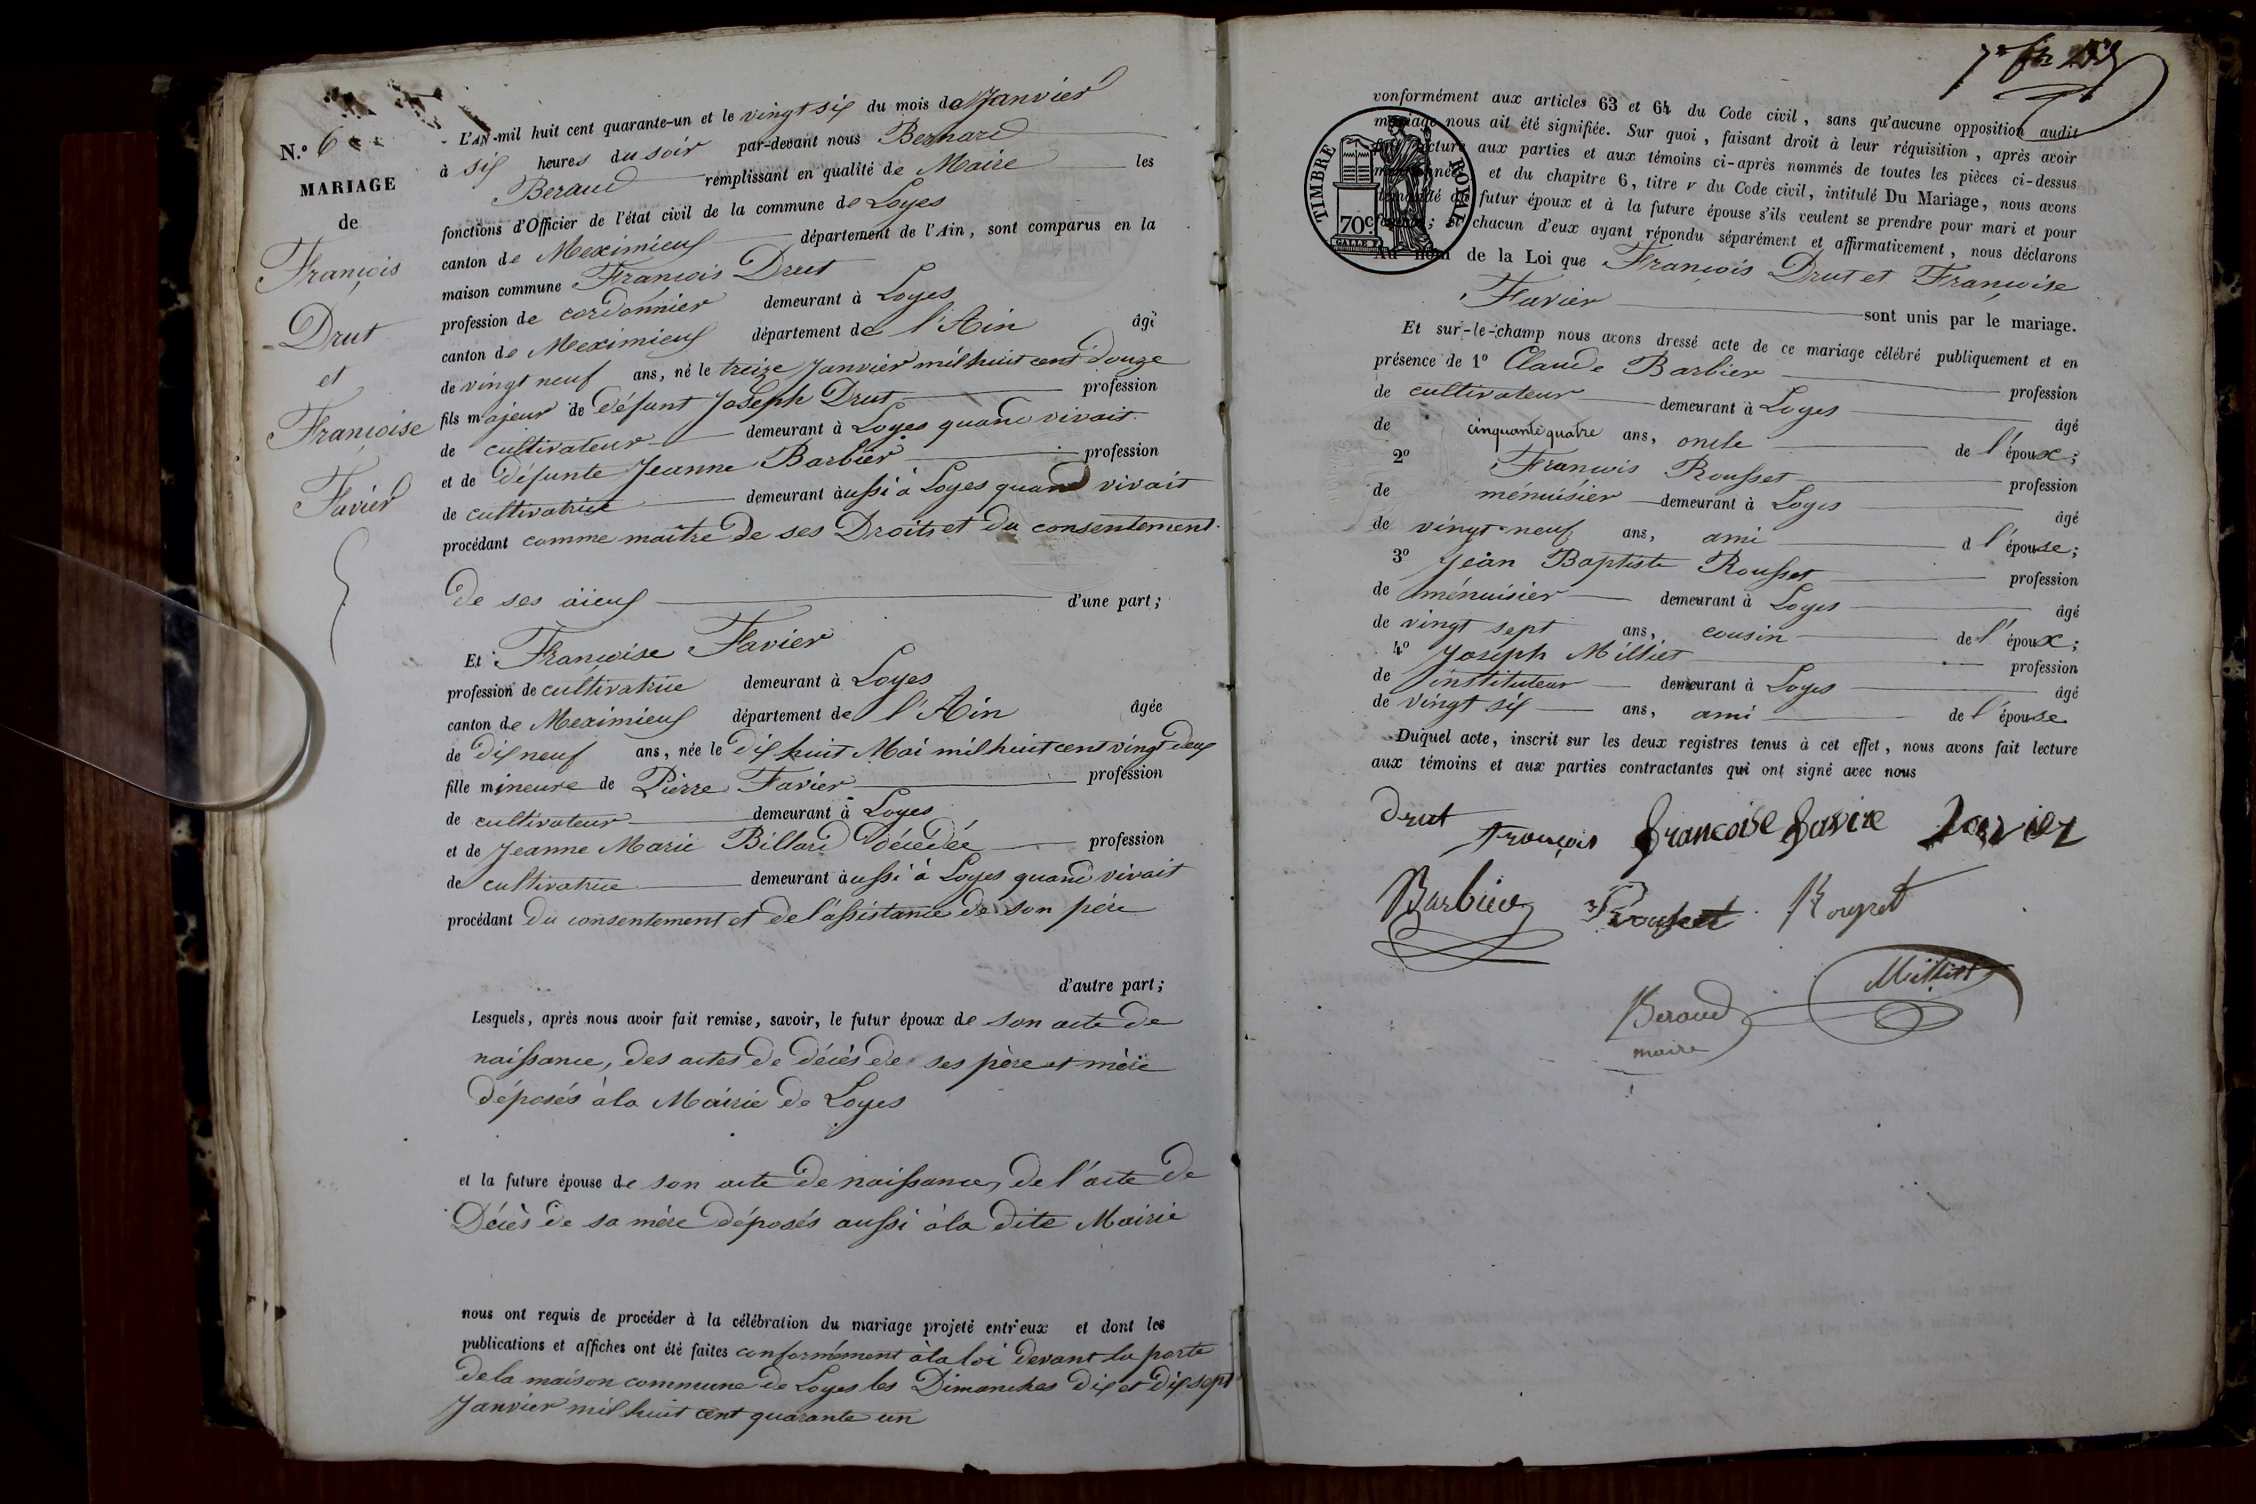 N.º 6
MARIAGE
de
François
Drut
et
Françoise
Favier
L'AN mil huit cent quarante-un et le vingt six du mois de Janvier
à six heures du soir par-devant nous Bernard
Beraud remplissant en qualité de Maire les
fonctions d'Officier de l'état civil de la commune de Loyes
canton de Meximieux département de l'Ain, sont comparus en la
maison commune François Drut
profession de cordonnier demeurant à Loyes
canton de Meximieux département de l'Ain âgé
de vingt neuf ans, né le treize Janvier mil huit cent douze
fils majeur de défunt Joseph Drut profession
de cultivateur demeurant à Loyes quand vivait
et de défunte Jeanne Barbier profession
de cultivatrice demeurant aussi à Loyes quand vivait
procédant comme maître de ses Droits et du consentement
de ses aieux d'une part;
Et Françoise Favier
profession de cultivatrice demeurant à Loyes
canton de Meximieux département de l'Ain âgée
de dix neuf ans, née le dix huit Mai mil huit cent vingt deux
fille mineure de Pierre Favier profession
de cultivateur demeurant à Loyes
et de Jeanne Marie Billard décédée profession
de cultivatrice demeurant aussi à Loyes quand vivait
procédant du consentement et de l'assistance de son père
d'autre part;
Lesquels, après nous avoir fait remise, savoir, le futur époux de son acte de
naissance, des actes de décès de ses père et mère
déposés à la Mairie de Loyes
et la future épouse de son acte de naissance, de l'acte de
Décès de sa mère déposés aussi à la dite Mairie
nous ont requis de procéder à la célébration du mariage projeté entr'eux et dont les
publications et affiches ont été faites conformément à la loi devant la porte
de la maison commune de Loyes les Dimanches dix et dix sept
Janvier mil huit cent quarante un
conformément aux articles 63 et 64 du Code civil, sans qu'aucune opposition audit
mariage nous ait été signifiée. Sur quoi, faisant droit à leur réquisition, après avoir
lecture aux parties et aux témoins ci-après nommés de toutes les pièces ci-dessus
et du chapitre 6, titre v du Code civil, intitulé Du Mariage, nous avons
demandé au futur époux et à la future épouse s'ils veulent se prendre pour mari et pour
femme; et chacun d'eux ayant répondu séparément et affirmativement, nous déclarons
Au nom de la Loi que François Drut et Françoise
Favier sont unis par le mariage.
TIMBRE ROYAL
70c
Et sur-le-champ nous avons dressé acte de ce mariage célébré publiquement et en
présence de 1º Claude Barbier profession
de cultivateur demeurant à Loyes âgé
de cinquante quatre ans, oncle de l'époux;
2º François Rousset profession
de menuisier demeurant à Loyes âgé
de vingt neuf ans, ami d l'épouse;
3º Jean Baptiste Rousset profession
de menuisier demeurant à Loyes âgé
de vingt sept ans, cousin de l'époux;
4º Joseph Milliet profession
de instituteur demeurant à Loyes âgé
de vingt six ans, ami de l'épouse
Duquel acte, inscrit sur les deux registres tenus à cet effet, nous avons fait lecture
aux témoins et aux parties contractantes qui ont signé avec nous
Drut
françois francoise favier
Barbier Rousset Rousset
Milliet
Beraud
maire